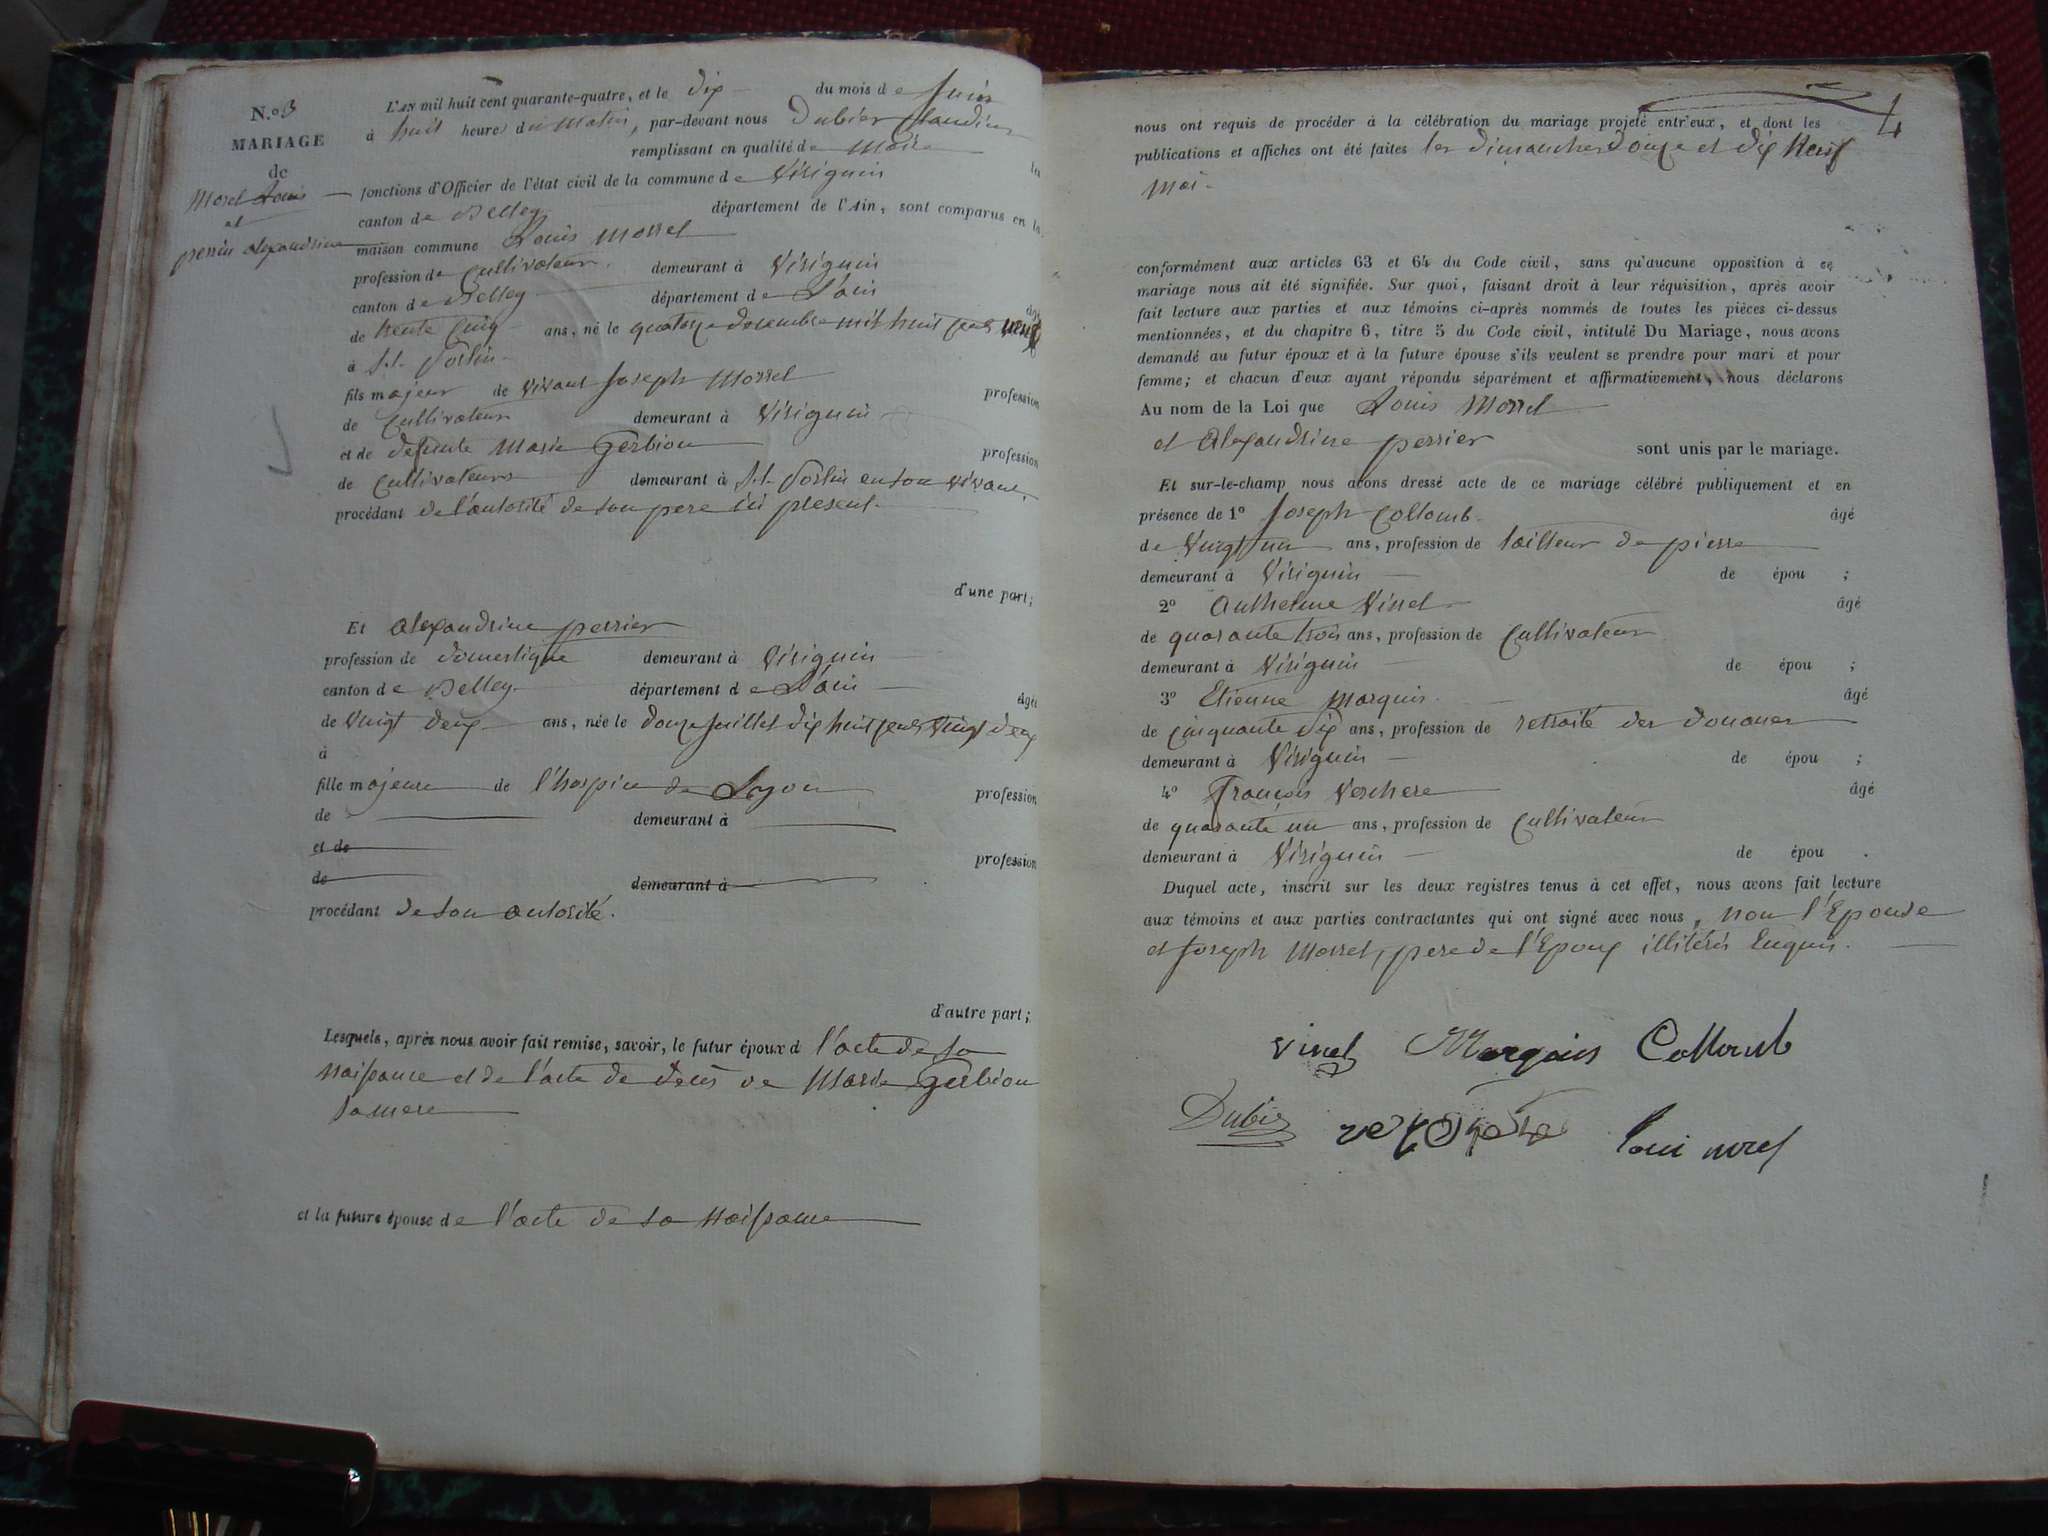 N.º 3
MARIAGE
de
Morel Louis
et
perrier alexandrine
L'AN mil huit cent quarante-quatre, et le dix du mois de Juin
à huit heure du Matin, par-devant nous Dubier Claudius
remplissant en qualité de Maire les
fonctions d'Officier de l'état civil de la commune de Virignin
canton de Belley département de l'Ain, sont comparus en la
maison commune Louis Morrel
profession de Cultivateur demeurant à Virignin
canton de Belley département de L'ain âgé
de trente Cinq ans, né le quatorze decembre mil huit cent neuf
à St. Sorlin
fils majeur de vivant Joseph Morrel profession
de Cultivateur demeurant à Virignin
et de defunte Marie Gerbion profession
de Cultivateurs demeurant à St. Sorlin en son vivant,
procédant de l'autorité de son pere ici present.
d'une part;
Et alexandrine perrier
profession de domestique demeurant à Virignin
canton de Belley département de L'ain âgée
de Vingt deux ans, née le douze Juillet dix huit cent vingt deux
à
fille majeure de l'hospice de Lyon profession
de demeurant à
et de profession
de demeurant à
procédant de son autorité.
d'autre part;
Lesquels, après nous avoir fait remise, savoir, le futur époux d l'acte de sa
naissance et de l'acte de deces de Marie Gerbion
sa mere
et la future épouse de l'acte de sa naissance
4
nous ont requis de procéder à la célébration du mariage projeté entr'eux, et dont les
publications et affiches ont été faites les dimanches douze et dix Neuf
Mai.
conformément aux articles 63 et 64 du Code civil, sans qu'aucune opposition à ce
mariage nous ait été signifiée. Sur quoi, faisant droit à leur réquisition, après avoir
fait lecture aux parties et aux témoins ci-après nommés de toutes les pièces ci-dessus
mentionnées, et du chapitre 6, titre 5 du Code civil, intitulé Du Mariage, nous avons
demandé au futur époux et à la future épouse s'ils veulent se prendre pour mari et pour
femme; et chacun d'eux ayant répondu séparément et affirmativement, nous déclarons
Au nom de la Loi que Louis Morrel
et Alexandrine perrier sont unis par le mariage.
Et sur-le-champ nous avons dressé acte de ce mariage célébré publiquement et en
présence de 1º Joseph Collomb âgé
de Vingt un ans, profession de tailleur de pierre
demeurant à Virignin de épou ;
2º Anthelme Vinel âgé
de quarante trois ans, profession de Cultivateur
demeurant à Virignin de épou ;
3º Etienne Marquis âgé
de Cinquante dix ans, profession de retraité des douanes
demeurant à Virignin de épou ;
4º François Verchere âgé
de quarante un ans, profession de Cultivateur
demeurant à Virignin de épou .
Duquel acte, inscrit sur les deux registres tenus à cet effet, nous avons fait lecture
aux témoins et aux parties contractantes qui ont signé avec nous, non l'Epouse
et Joseph Morrel, pere de l'Epoux illitérés Enquis.
vinel Marquis Collomb
Dubier loui morel